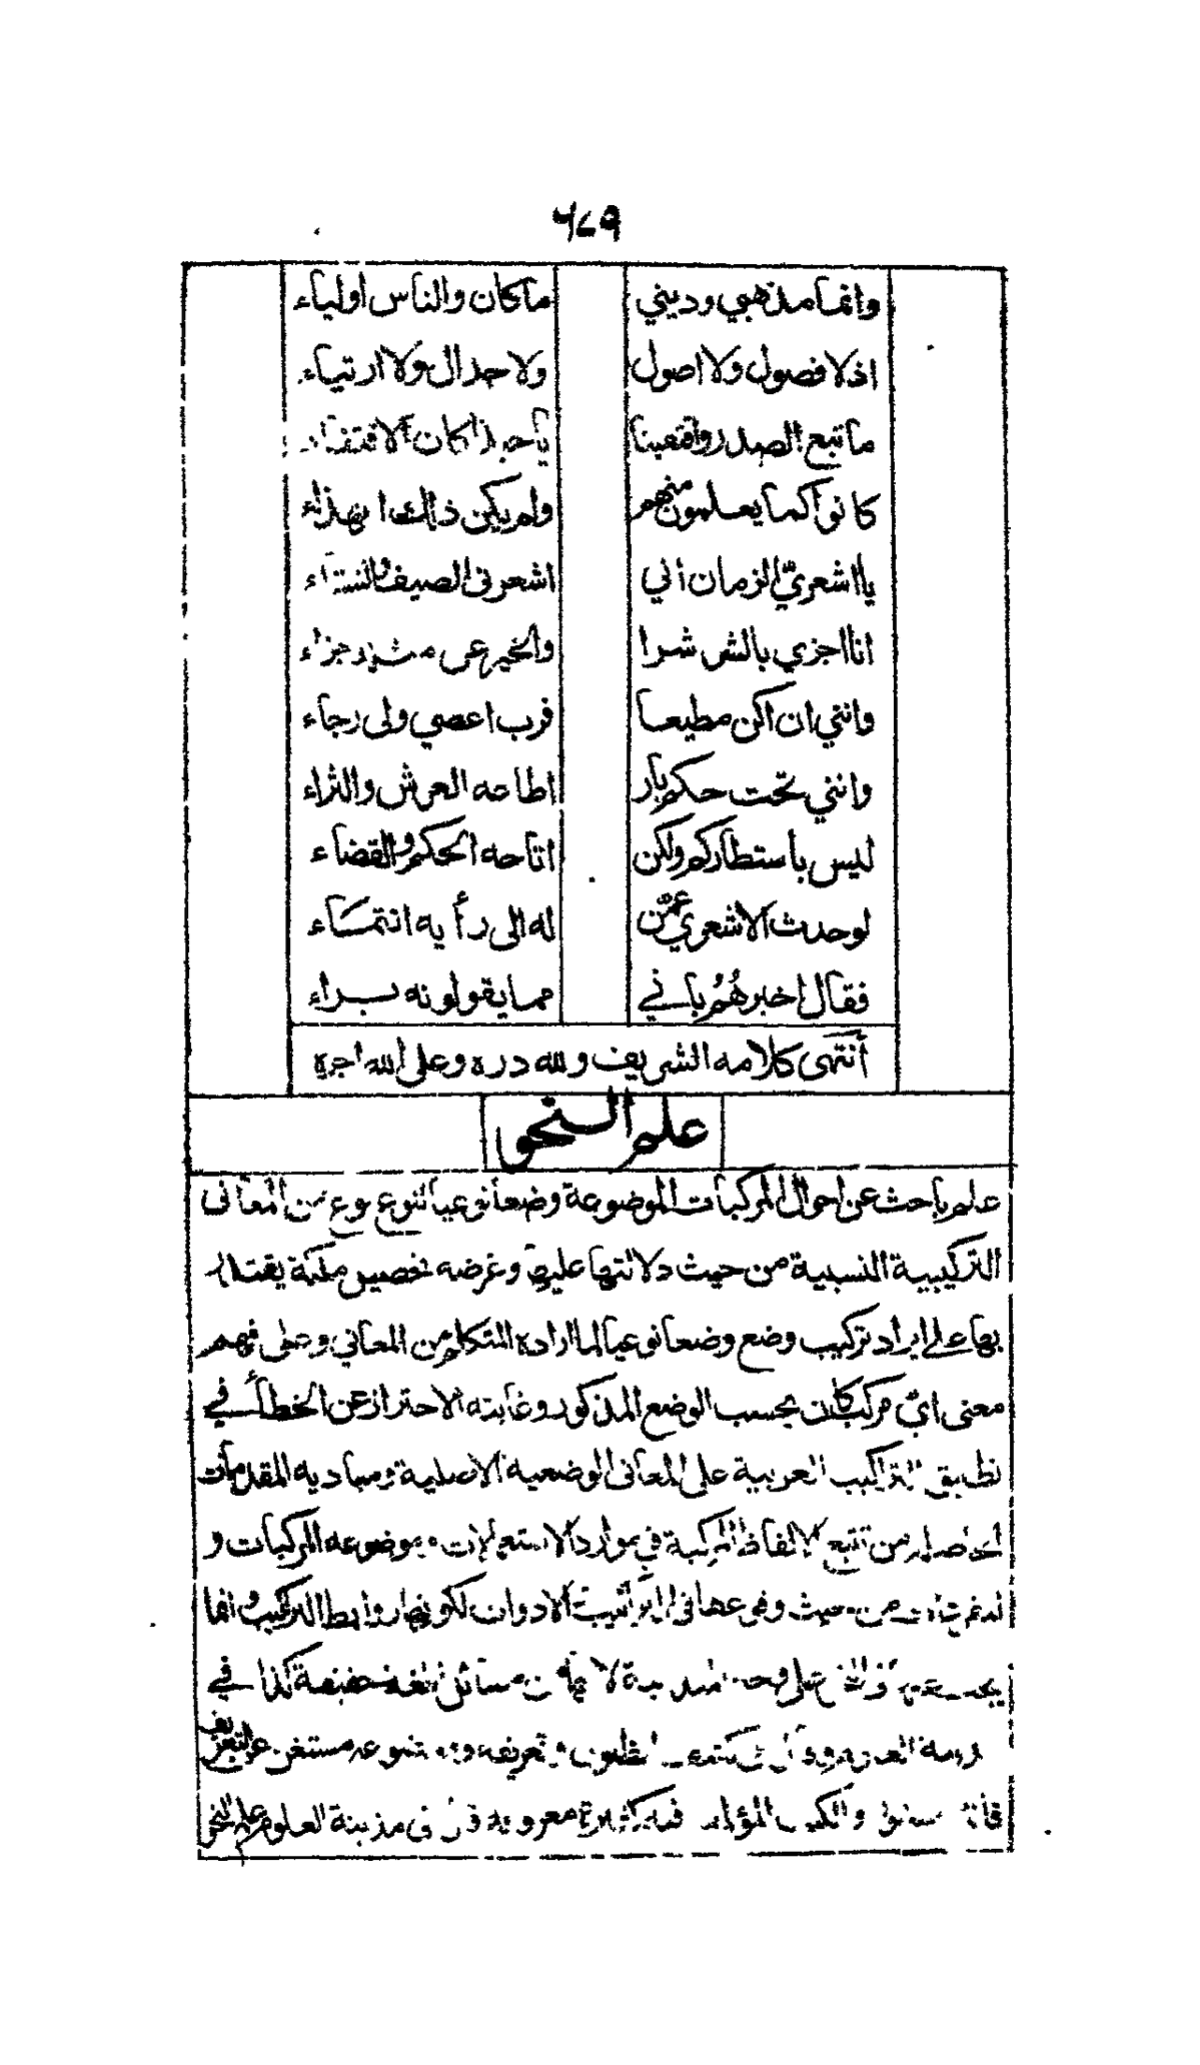 ٦٧٩
وانما مذهبي وديني ما كان والناس اولياء
اذ لا فصول ولا اصول ولا جدال ولا ارتياء
ما تبع الصدر واقتفينا يا حبذا كان الاقتفاء
كانوا كما يعلمون منهم ولم يكن ذلك الهذاء
يا اشعريّ الزمان اني اشعرني الصيف والشتاء
انا اجزي بالشر شرا والخير عن مثله جزاء
وانني ان اكن مطيعا فرب اعصي ولى رجاء
وانني تحت حكم بار اطاعه العرش والثراء
ليس باستطاركم ولكن اتاحه الحكم والقضاء
لو حدث الاشعري عمّن له الى رأيه انتماء
فقال اخبرهُمُ باني مما يقولونه براء
أنتهى كلامه الشريف ولله دره وعلى الله اجره
علم النحو
علم باحث عن احوال المركبات الموضوعة وضعا نوعيا لنوع نوع من المعانى
التركيبية النسبية من حيث دلالتها عليها وغرضه تحصيل ملكة يقتدر
بها على ايراد تركيب وضع وضعا نوعيا لما اراده المتكلم من المعاني وعلى فهم
معنى ايّ مركب كان بحسب الوضع المذكور وغايته الاحتراز عن الخطأ في
تطبيق التراكيب العربية على المعانى الوضعية الاصلية ومباديه المقدمات
الحاصلة من تتبع الالفاظ المركبة في موارد الاستعمالات وموضوعه المركبات و
من حيث وقوعها فى التراكيب الادوات لكونها روابط التركيب وانما
مسائل كذا في
وتعريفه مستغن عن التعريف
والكتب المؤلفة فيه كثيرة معروفة قال فى مدينة العلوم علم النحو